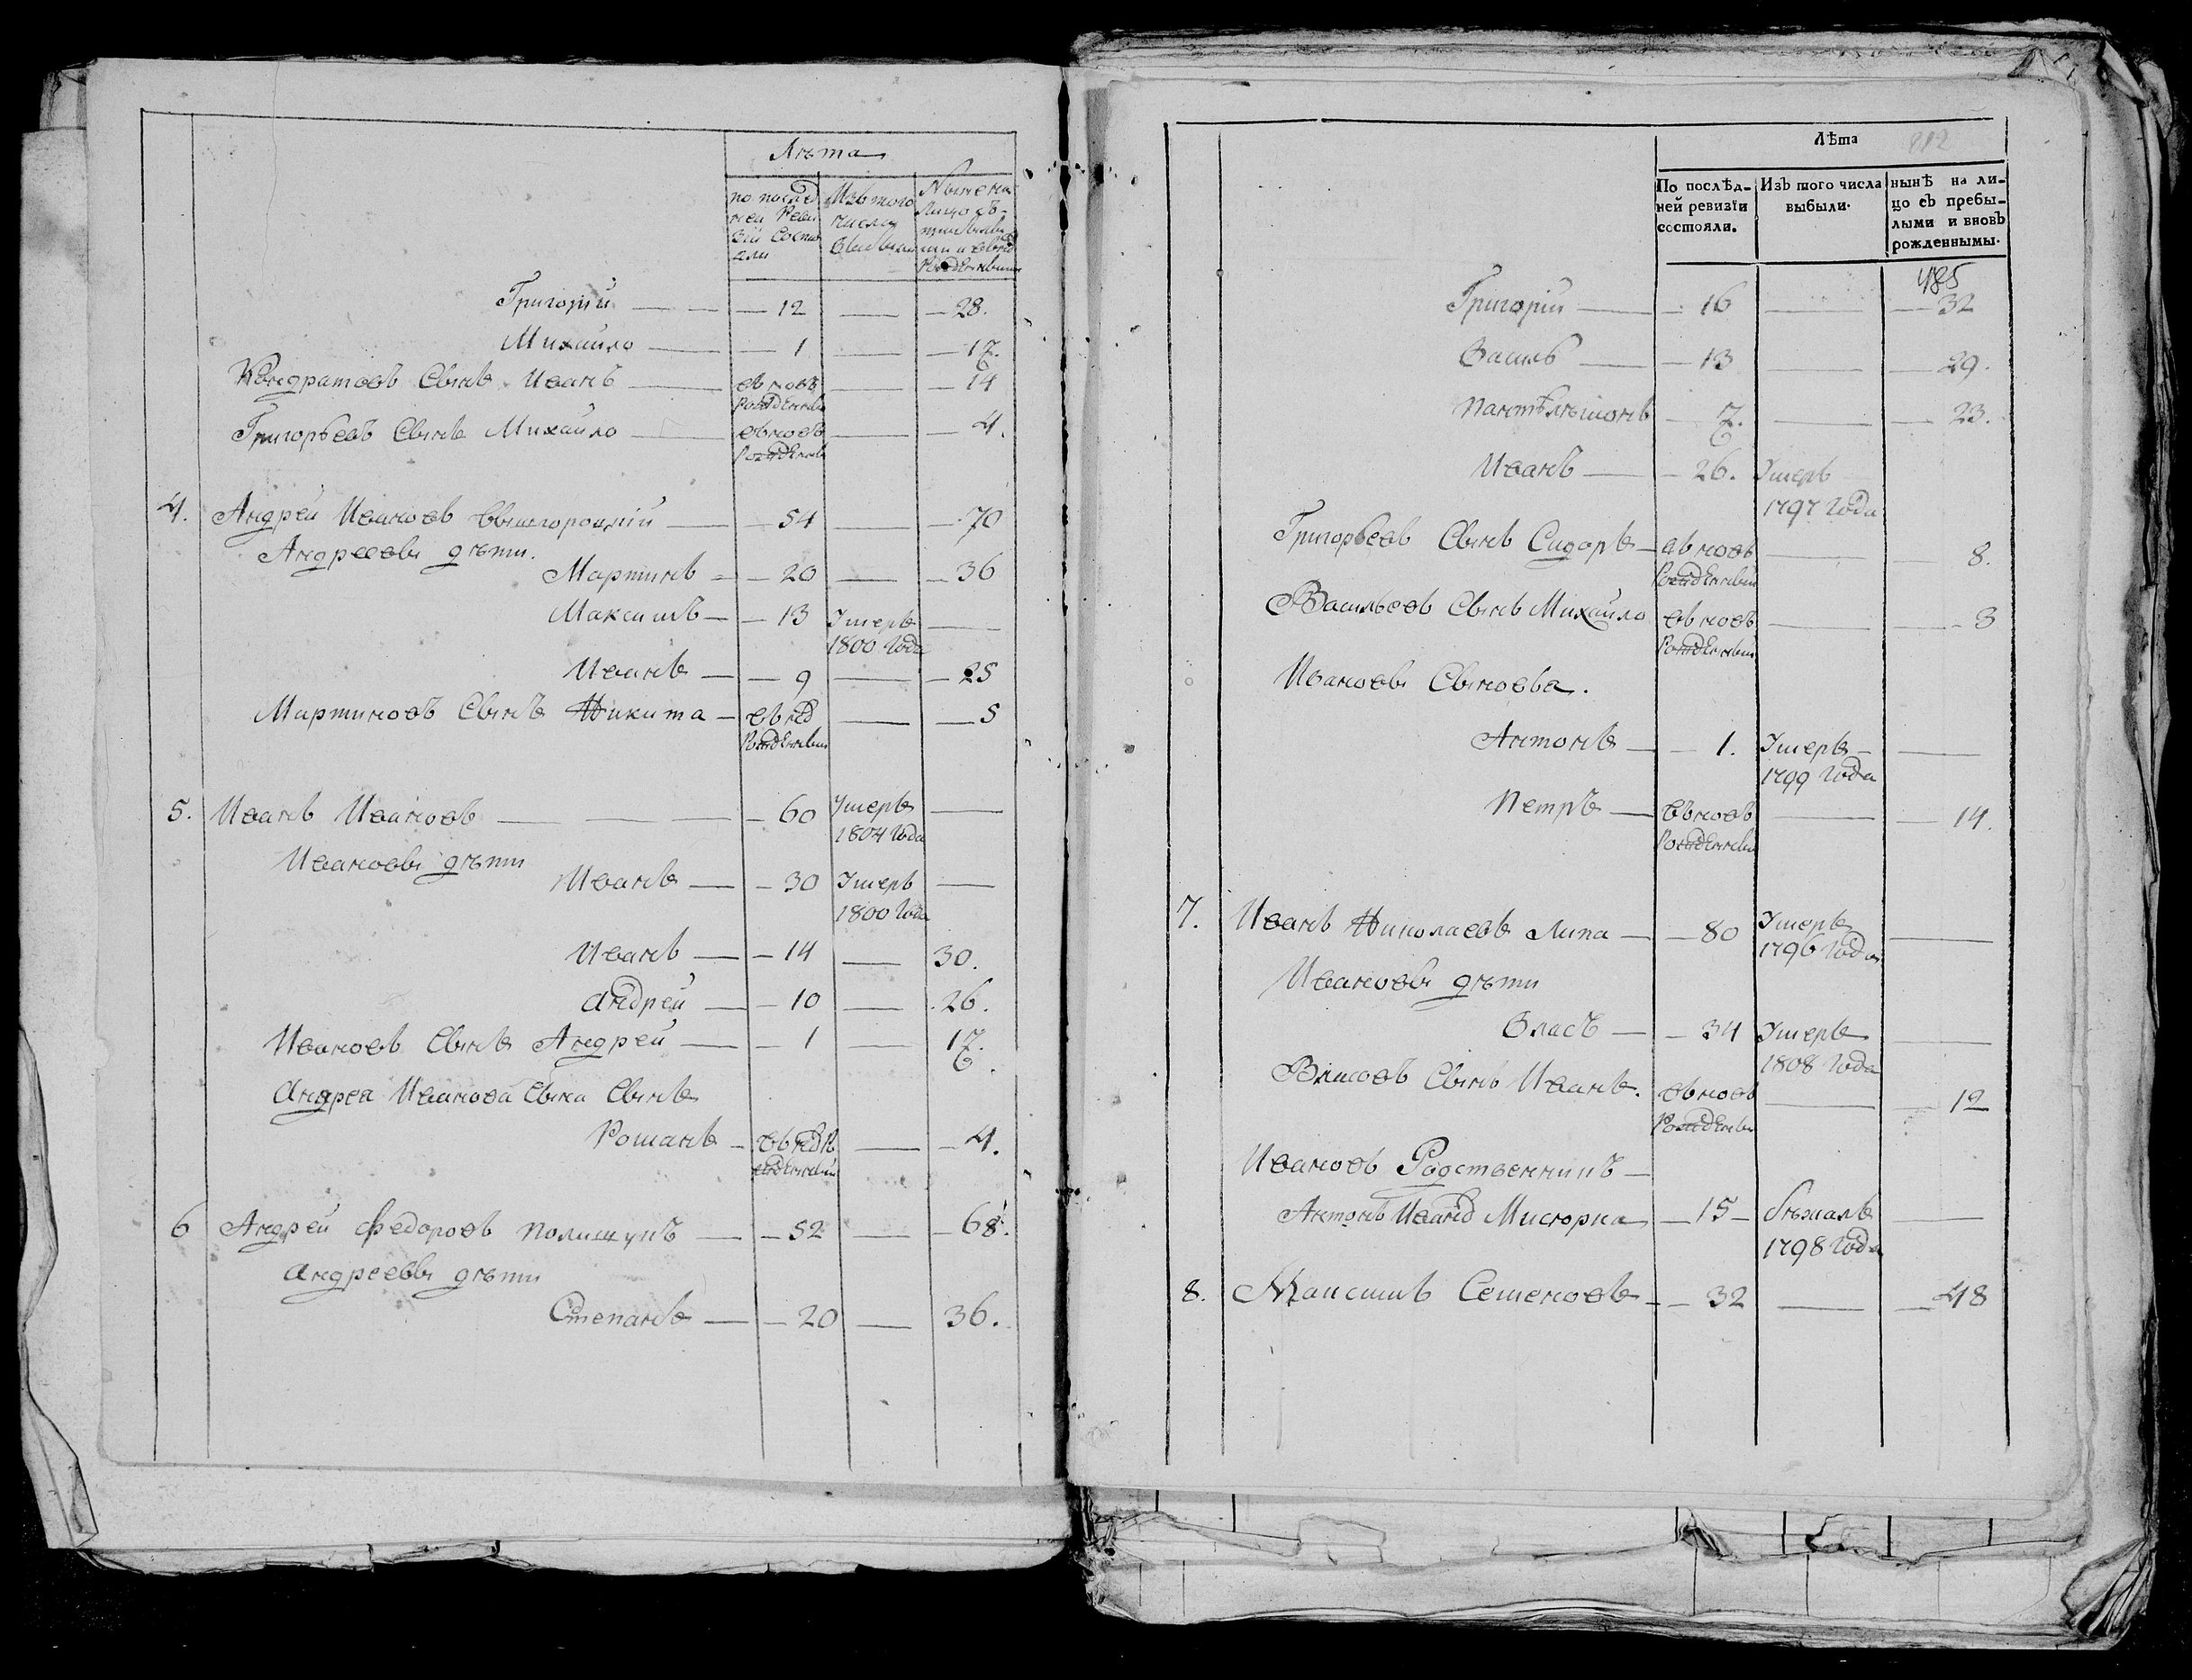 Лѣта
по послѣд
ней Реви
зіи состо
яли
Изъ того
числа
выбыли
Ныне на
лицо съ
Григорій — 12 — 28.
Михайло — 1 — 17.
Кондратовъ Сынъ Иванъ — вновь — 14
рожденны
Григорьевъ Сынъ Михайло — вновь — 4.
рожденны
4. Андрей Ивановъ Вышгороцкій — 54 — 70
Андреевы дѣти.
Мартинъ — 20 — 36
Максимъ — 13 Умеръ —
1800 Года
Иванъ — 9 — 25
Мартиновъ Сынъ Никита — внов — 5
Рожденный
5. Иванъ Ивановъ — 60 Умеръ —
1804 Года
Ивановы дѣти
Иванъ — 30 Умеръ —
1800 Года
Иванъ — 14 — 30.
Андрей — 10 — 26.
Ивановъ Сынъ Андрей — 1 — 17.
Андрея Иванова Сына Сынъ
Романъ — внов Ро — 4.
жденный
6 Андрей Федоровъ Полищукъ — 52 — 68.
Андреевы дѣти
Степанъ — 20 — 36.
Лѣта 212
По послѣд-
ней ревизіи
состояли.
Изъ того числа
выбыли.
нынѣ на ли-
цо съ прибы-
лыми и вновь
рожденными.
485
Григорій — 16 — 32
Василь — 13 — 29.
Пантѣлѣимонъ — 7. — 23.
Иванъ — 26. Умеръ
1797 Года
Григорьевъ Сынъ Сидоръ — вновь — 8.
Рожденный
Васильевъ Сынъ Михайло вновь — 8
Рожденный
Ивановы Сыновья.
Антонъ — 1. Умеръ —
1799 Года
Петръ — вновь — 14.
Рожденный
7. Иванъ Николаевъ Липа — 80 Умеръ —
1796 Года
Ивановы дѣти
Власъ — 34 Умеръ —
1808 Года
Власовъ Сынъ Иванъ. вновь — 12
Рожденны
Ивановъ Родственникъ —
Антонъ Иванов Мисюрка — 15 — бѣжалъ —
1798 Года
8. Максимъ Семеновъ — 32 — 48